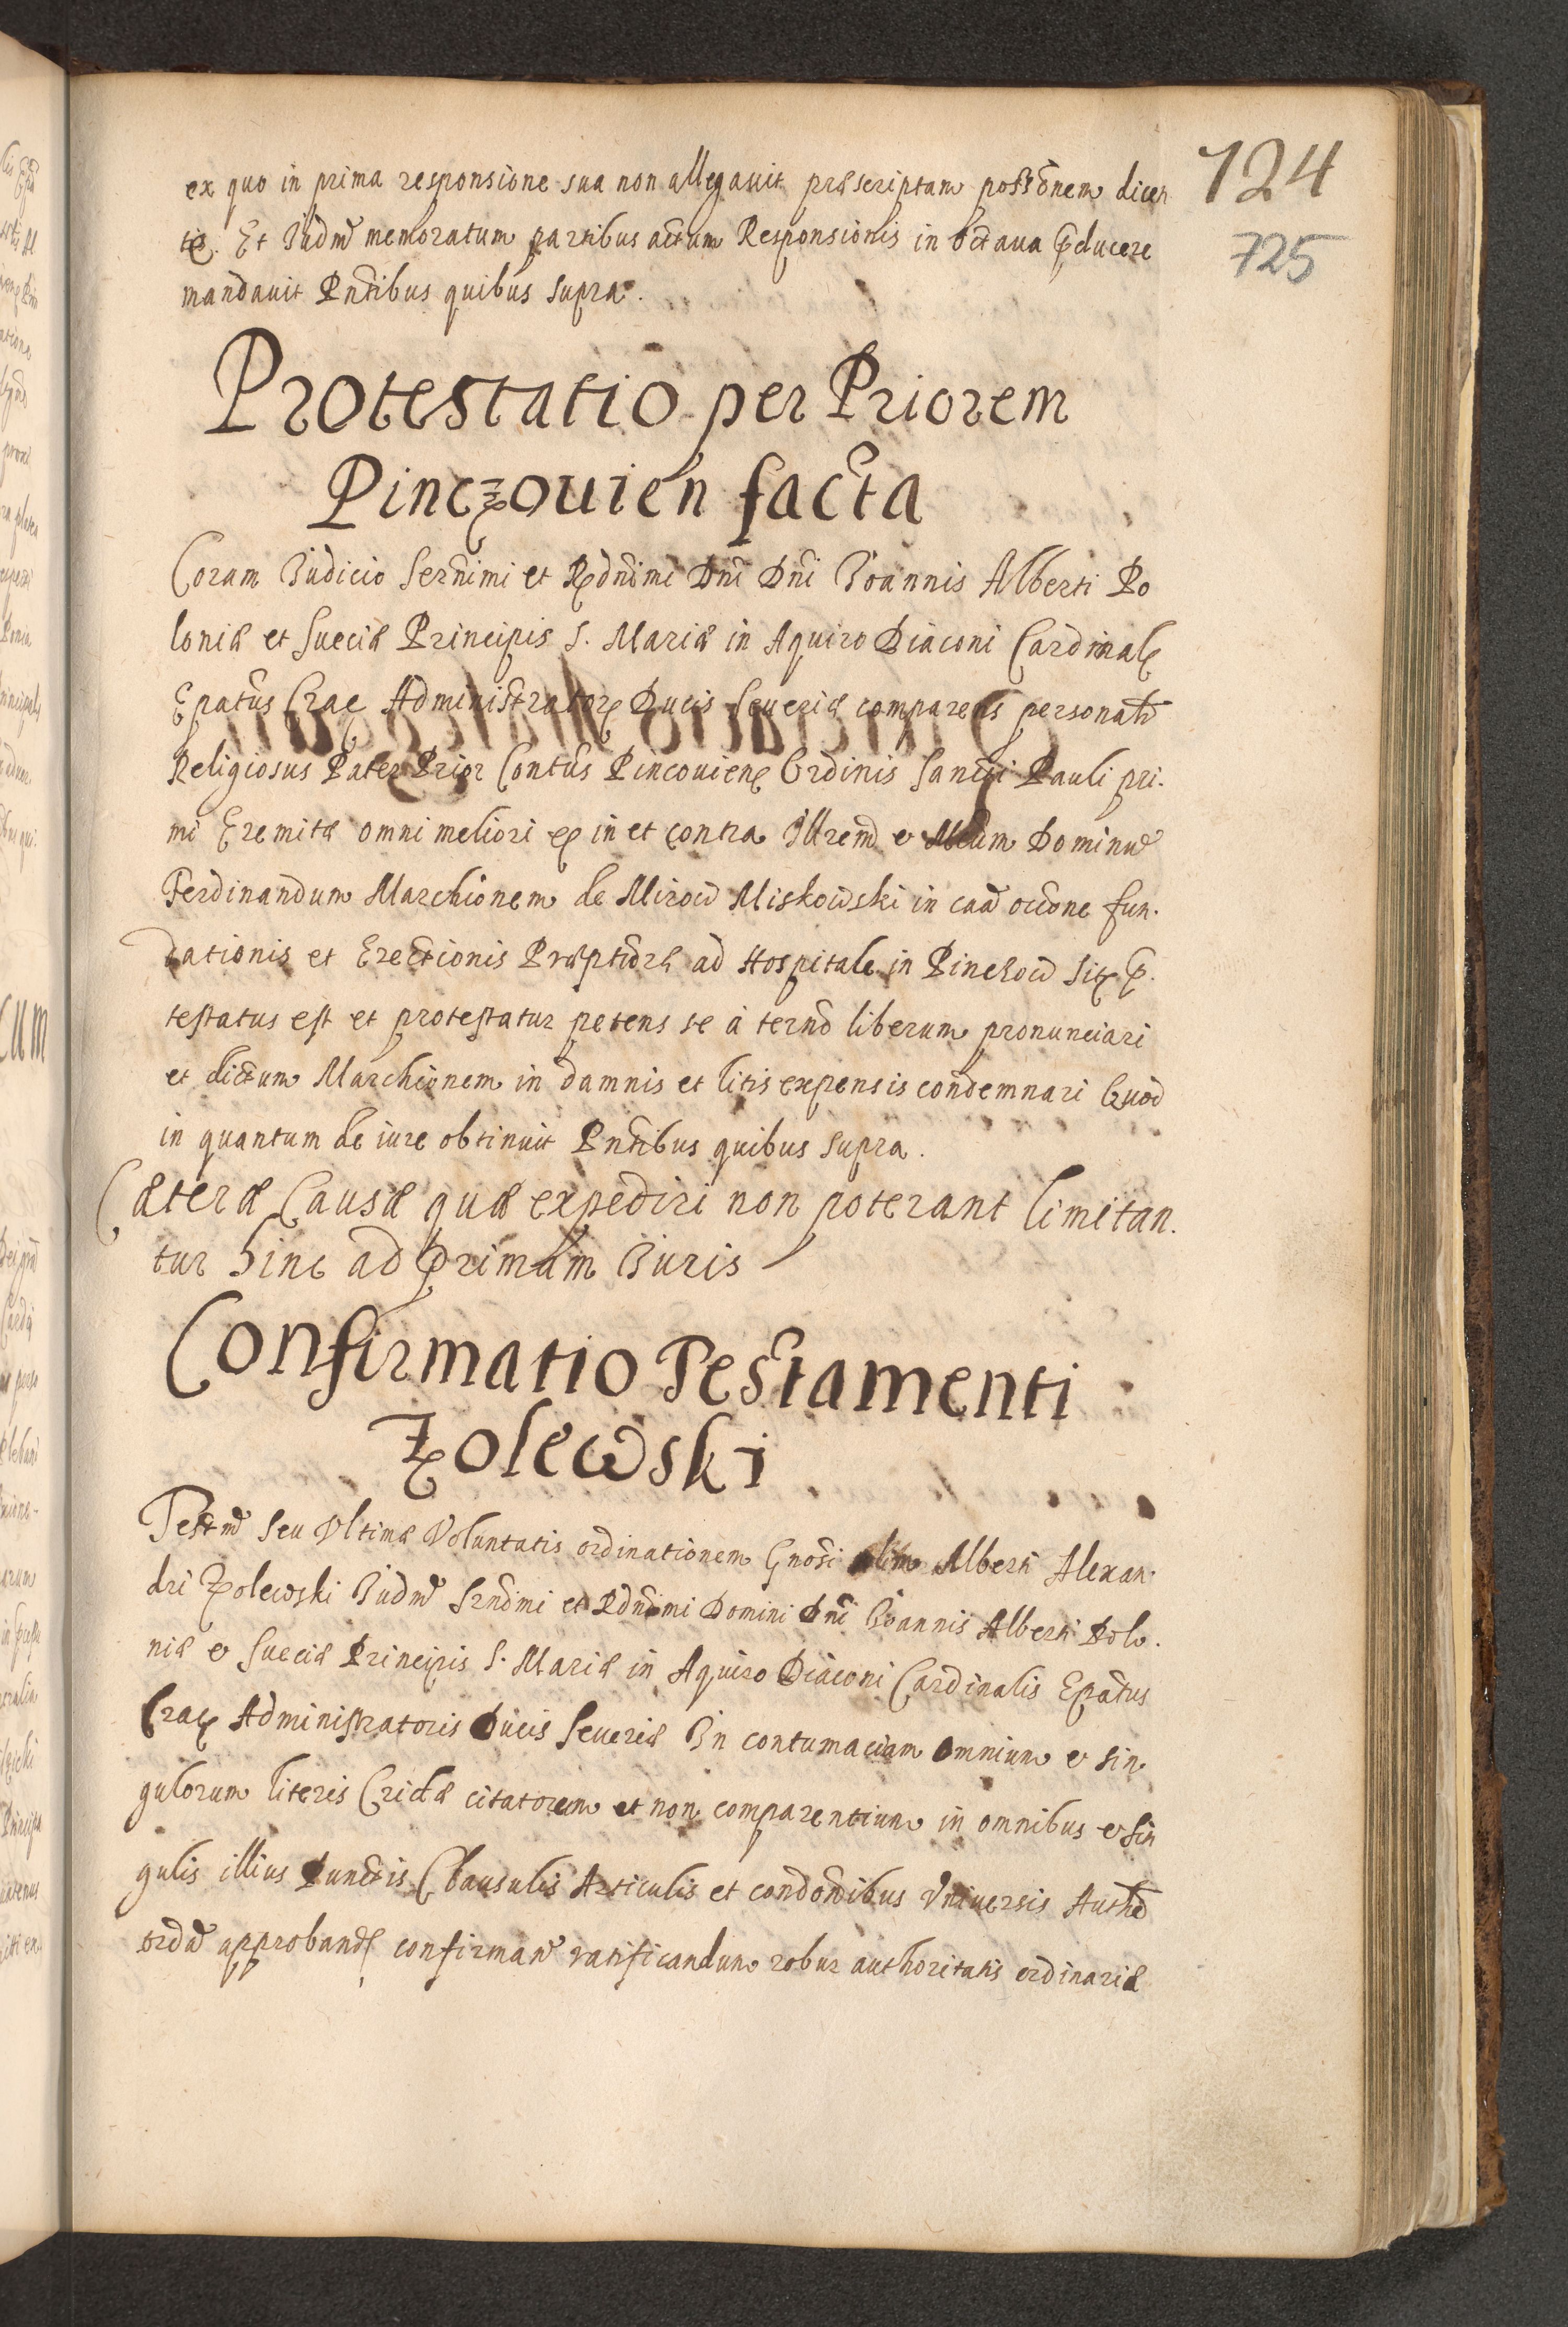 124
725
ex quo in prima responsione sua non allegauit præscriptam possõnem dicen
tẽ. Et Iudm̃ memoratum partibus actum Responsionis in octaua ꝓducere
mandauit Pñtibus quibus supra.
Protestatio per Priorem
Pinczouien facta
Coram Iudicio Serñimi et Rdñimi Dñi Dñi Ioannis Alberti Po
loniæ et Sueciæ Principis S. Mariæ in Aquiro Diaconi Cardinalę
Epatus Crac Administratorę Ducis Seueriæ comparens personalr̃
Religiosus Pater Prior Contũs Pincouienę Ordinis Sancti Pauli pri.
mi Eremitæ omni meliori ę in et contra Illrem̃ & Mcum Dominũ
Ferdinandum Marchionem de Mirow Miskowski in caã oc̃one fun.
dationis et Erectionis Præptũræ ad Hospitale in Pinczow sitę ꝓ.
testatus est et protestatur petens se à ternõ liberum pronunciari
et dictum Marchionem in damnis et litis expensis condemnari Quod
in quantum de iure obtinuit Pñtibus quibus supra.
Cæteræ Causæ quæ expediri non poterant limitan.
tur hinc ad primam Iuris
Confirmatio Testamenti
Zolewski
Testm̃ seu Vltimæ Voluntatis ordinationem Gnosi olim Alberti Alexan.
dri Zolewski Iudm̃ Srñimi et Rdñimi Domini Dñi Ioannis Alberti Polo.
niæ & Sueciæ Principis S. Mariæ in Aquiro Diaconi Cardinalis Epatus
Cracę Administratoris Ducis Seueriæ In contumaciam omnium & sin
gulorum literis Cridæ citatorum et non comparentium in omnibus & sin
gulis illius Punctis Clausulis Articulis et condõnibus Vniuersis Authẽ
ordã approbandę confirmañ ratificandum robur authoritatis ordinariæ